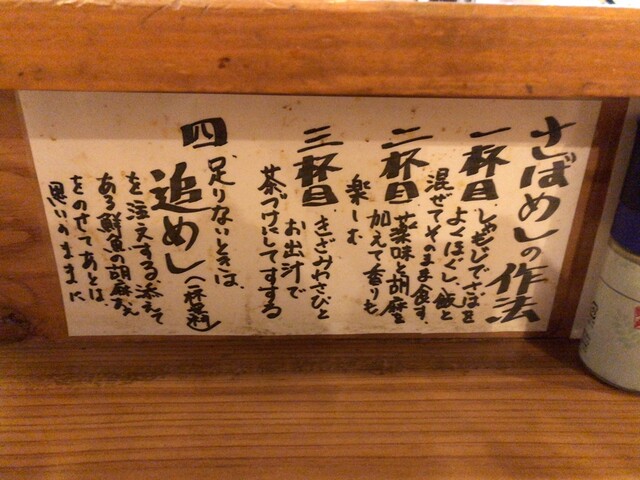 さばめしの作法
一杯目 しゃもじでさばを
よくほぐし、飯と
混ぜてそのまま食す。
二杯目 薬味と胡麻を
加えて香りも
楽しむ
三杯目 きざみわさびと
お出汁で
茶づけにしてすする
四、足りないときは、
追めし(一杯無料)
を注文する、添えて
ある鮮魚の胡麻あえ
をのせてあとは、
思いのままに